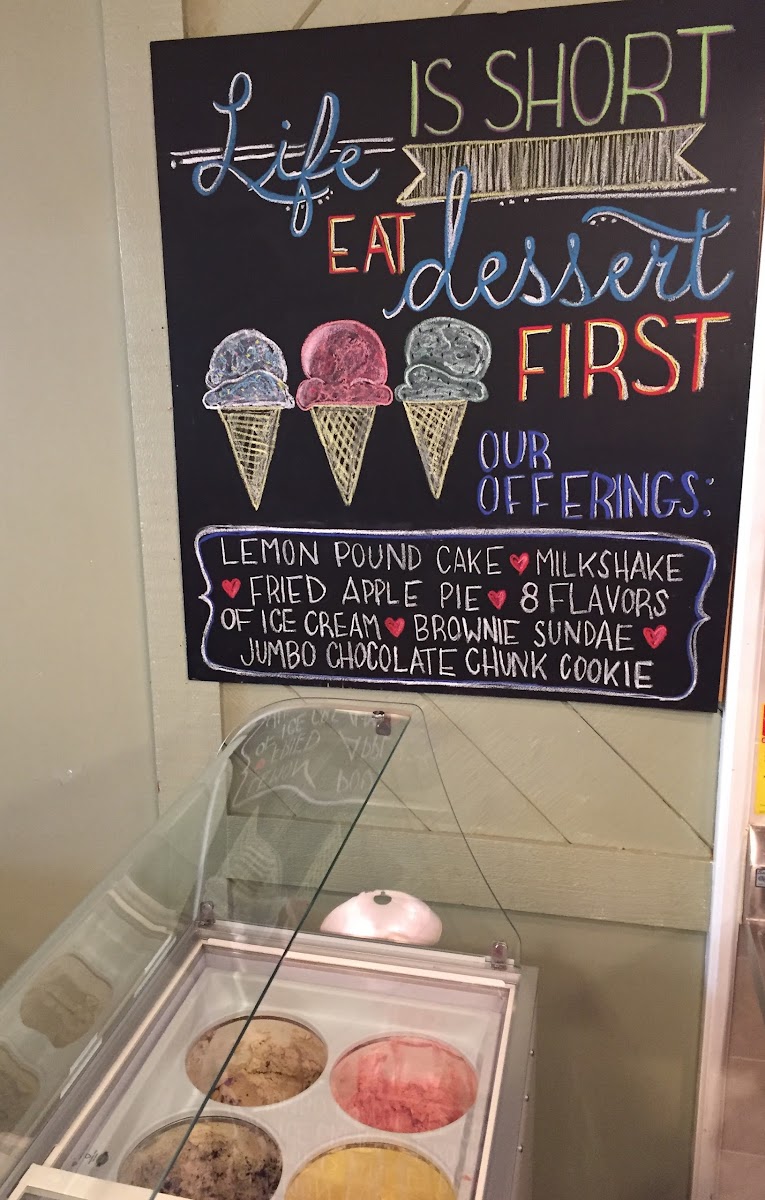 Life IS SHORT
EAT dessert
FIRST
OUR
OFFERINGS:
LEMON POUND CAKE ♥ MILKSHAKE
♥ FRIED APPLE PIE ♥ 8 FLAVORS
OF ICE CREAM ♥ BROWNIE SUNDAE ♥
JUMBO CHOCOLATE CHUNK COOKIE